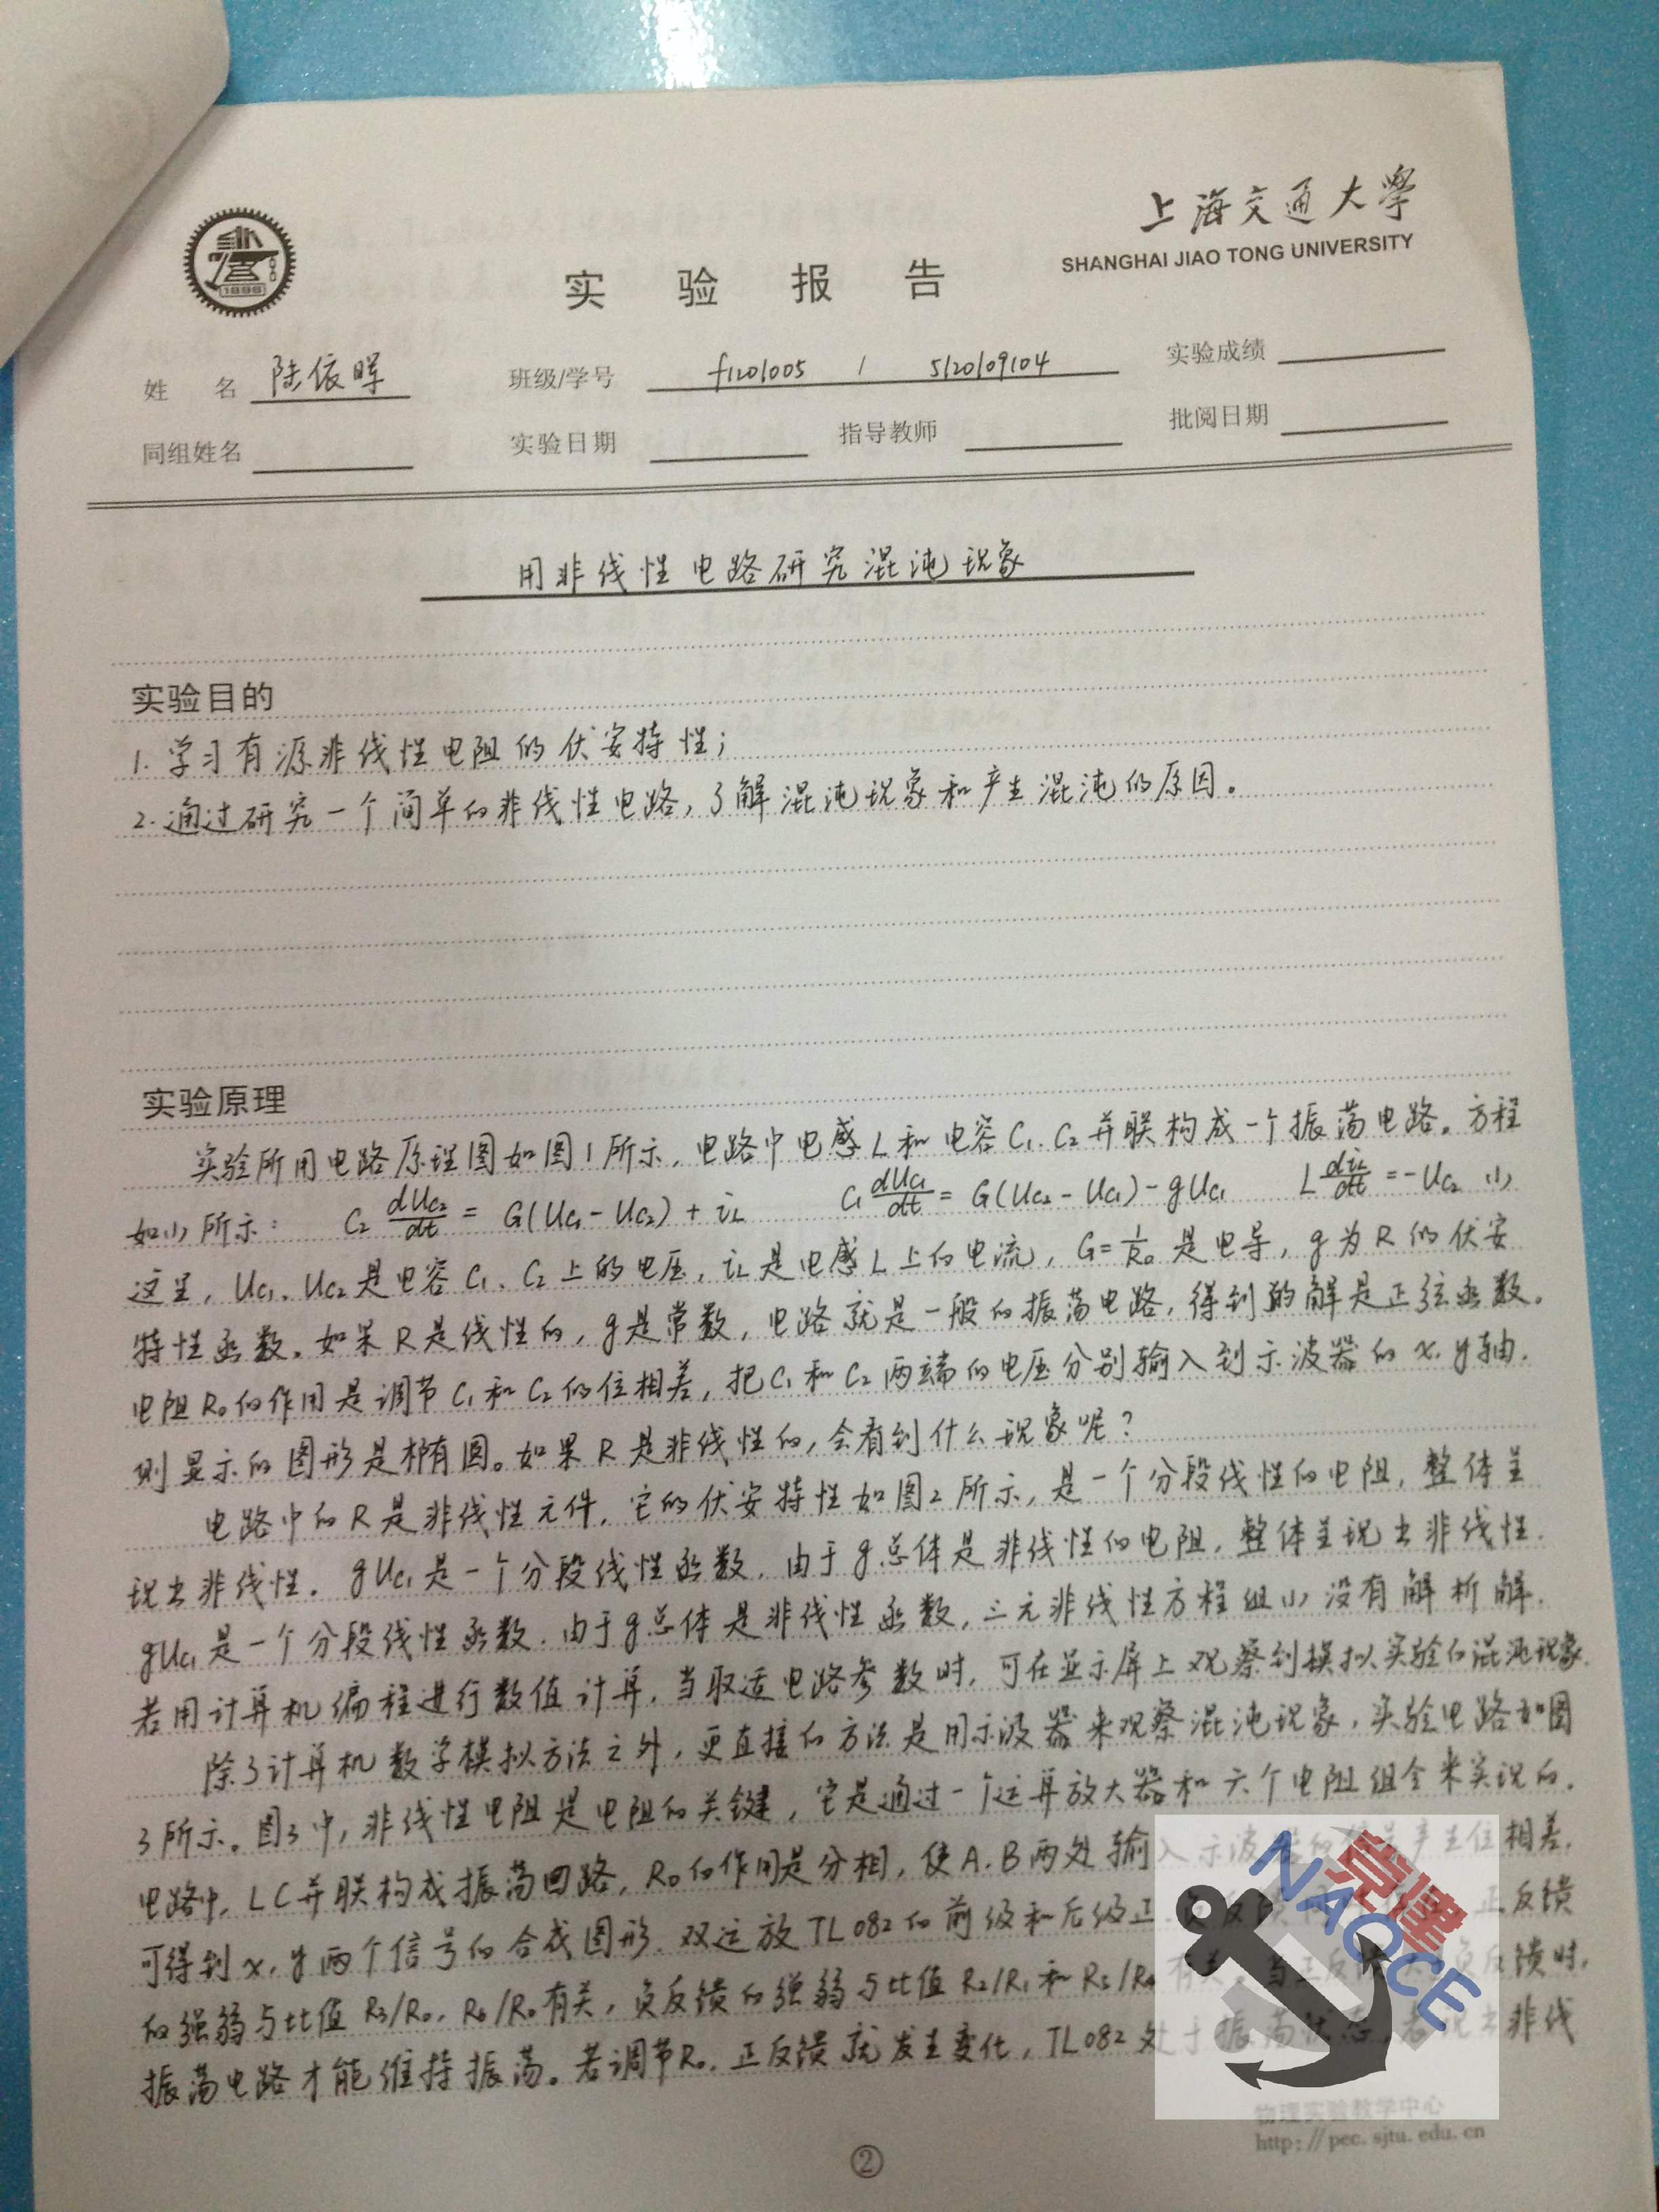 上海交通大学
SHANGHAI JIAO TONG UNIVERSITY
1896
实验报告
姓名 陆依晖 班级/学号 f1201005 / 5120109104 实验成绩
同组姓名 实验日期 指导教师 批阅日期
用非线性电路研究混沌现象
实验目的
1. 学习有源非线性电阻的伏安特性;
2. 通过研究一个简单的非线性电路,了解混沌现象和产生混沌的原因。
实验原理
实验所用电路原理图如图1所示,电路中电感L和电容C₁、C₂并联构成一个振荡电路。方程
如(1)所示: C₂ dUc₂/dt = G(Uc₁-Uc₂)+iL C₁ dUc₁/dt = G(Uc₂-Uc₁)-gUc₁ L diL/dt = -Uc₂ (1)
这里,Uc₁、Uc₂是电容C₁、C₂上的电压,iL是电感L上的电流,G=1/R₀是电导,g为R的伏安
特性函数。如果R是线性的,g是常数,电路就是一般的振荡电路,得到的解是正弦函数。
电阻R₀的作用是调节C₁和C₂的位相差,把C₁和C₂两端的电压分别输入到示波器的x,y轴,
则显示的图形是椭圆。如果R是非线性的,会看到什么现象呢?
电路中的R是非线性元件,它的伏安特性如图2所示,是一个分段线性的电阻,整体呈
现出非线性。gUc₁是一个分段线性函数,由于g总体是非线性的电阻,整体呈现出非线性.
gUc₁是一个分段线性函数.由于g总体是非线性函数,三元非线性方程组(1)没有解析解.
若用计算机编程进行数值计算,当取适电路参数时,可在显示屏上观察到模拟实验的混沌现象.
除了计算机数学模拟方法之外,更直接的方法是用示波器来观察混沌现象,实验电路如图
3所示。图3中,非线性电阻是电阻的关键,它是通过一个运算放大器和六个电阻组合来实现的.
电路中,LC并联构成振荡回路,R₀的作用是分相,使A.B两处输入示波器的 产生位相差,
可得到x,y两个信号的合成图形.双运放TL082的前级和后级正.负反馈 正反馈
的强弱与比值R₃/R₀,R₆/R₀有关,负反馈的强弱与比值R₂/R₁和R₅/R₄有关,当正反馈 负反馈时,
振荡电路才能维持振荡。若调节R₀,正反馈就发生变化,TL082处于振荡状态, 出非线
党建
NAOCE
物理实验教学中心
http://pec.sjtu.edu.cn
②